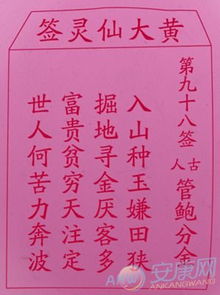 黄大仙灵签
第九十八签
古人 管鲍分金
入山种玉嫌田狭
掘地寻金厌客多
富贵贫穷天注定
世人何苦力奔波
安康网
ANKANGWANG